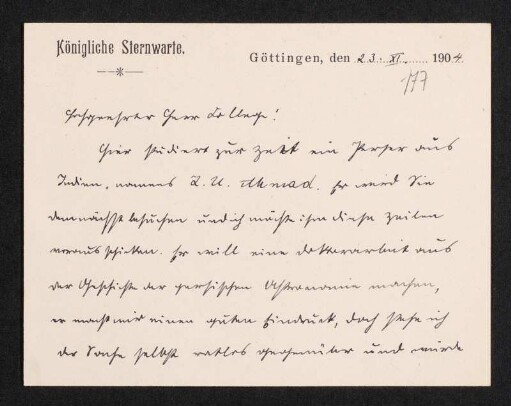 Königliche Sternwarte.
Göttingen, den 23. XI. 1904.
177
Hochgeehrter Herr College!
Hier studiert zur Zeit ein Perser aus
Indien, namens Z. U. Ahmad. Er wird Sie
demnächst besuchen und ich möchte ihm diese Zeilen
vorausschicken. Er will eine Doktorarbeit aus
der Geschichte der persischen Astronomie machen,
er macht mir einen guten Eindruck, doch stehe ich
der Sache selbst ratlos gegenüber und würde